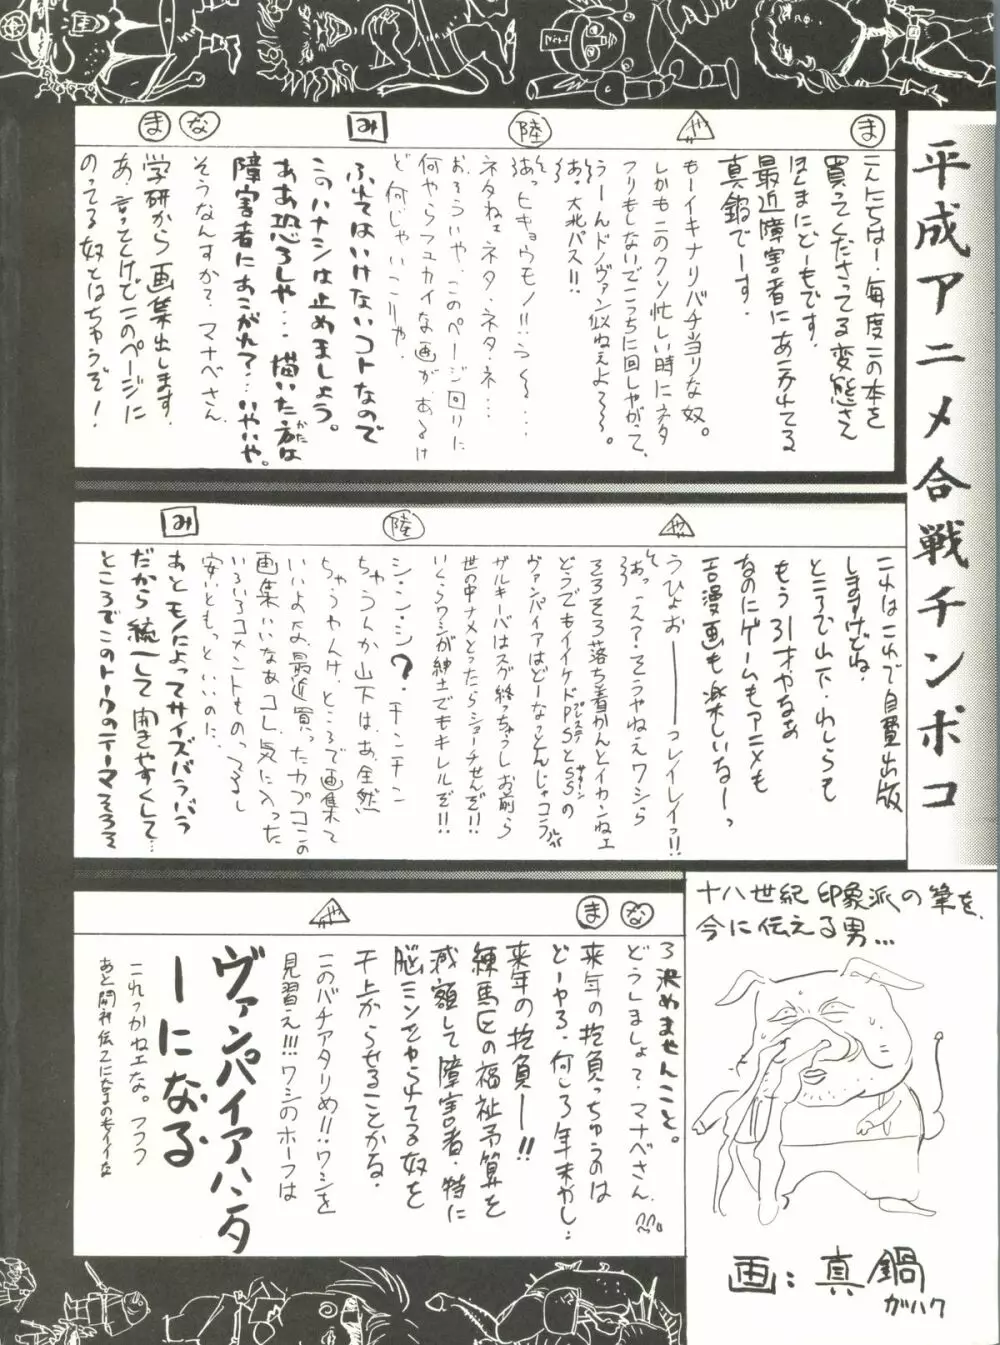 平成アニメ合戦チンポコ
ま
こんにちはー・毎度この本を
買ってくださってる変態さん
ほんまにどーもです.
最近障害者にあこがれてる
真鍋でーす.
や
もーイキナリバチ当りな奴。
しかもこのクソ忙しい時にネタ
フリもしないでこっちに回しやがって、
うーんドノヴァン似ねぇよろ〜。
あっ大北パス!!
陸
あっヒキョウモノ!!う〜〜...
ネタねェネタ・ネタ・ネ・・・
おろういや、このページ回りに
何やらフユカイな画があるけ
ど何じゃいこりゃ.
み
ふれてはいけないコトなので
このハナシは止めましょう。
ああ恐ろしや・・・描いた方は
かた
障害者にあこがれて?・・・いやいや。
な
そうなんすか?マナベさん
ま
学研から画集出します.
あ.言っとくけどこのページに
のってる奴とはちゃうぞ!
これはこれで自費出版
しますけどね.
ところで山下・わしらも
もう31才やなあ
なのにゲームもアニメも
エロ漫画も楽しいなーっ
や
うひょお———っレイレイっ!!
あっえ?そうやねえワシら
そろそろ落ち着かんとイカンねェ
どうでもイイケドPSとSSの
プレステ
サターン
ヴァンパイアはどーなっとんじゃコラ
ザルキーバはスグ終っちゃうしお前ら
世の中ナメとったらショーチせんぞ!!
いくらワシが紳士でもキレルぞ!!
陸
シ・ン・シ?.チンチン
ちゃうんか山下は、あ、全然
ちゃうやんけ、ところで画集て
いいよな、最近買ったカプコンの
画集いいなあコレ、気に入った
いろいろコメントものってるし
安いともっといいのに.
み
あとモノによってサイズバラバラ
だから統一して開きやすくして・・・
ところでこのトークのテーマそろそ
ろ決めませんこと。
な
どうしましょ?マナベさん.
ま
来年の抱負っちゅうのは
どーやろ.何しろ年末やし・・
来年の抱負ー!!
練馬区の福祉予算を
減額して障害者・特に
脳ミソをやられてる奴を
干上がらせることかな.
や
このバチアタリめ!!ワシを
見習え!!!ワシのホーフは
ヴァンパイアハンタ
ーになる
これっかねェな。フフフ
十八世紀印象派の筆を、
今に伝える男...
画:真鍋
ガハク